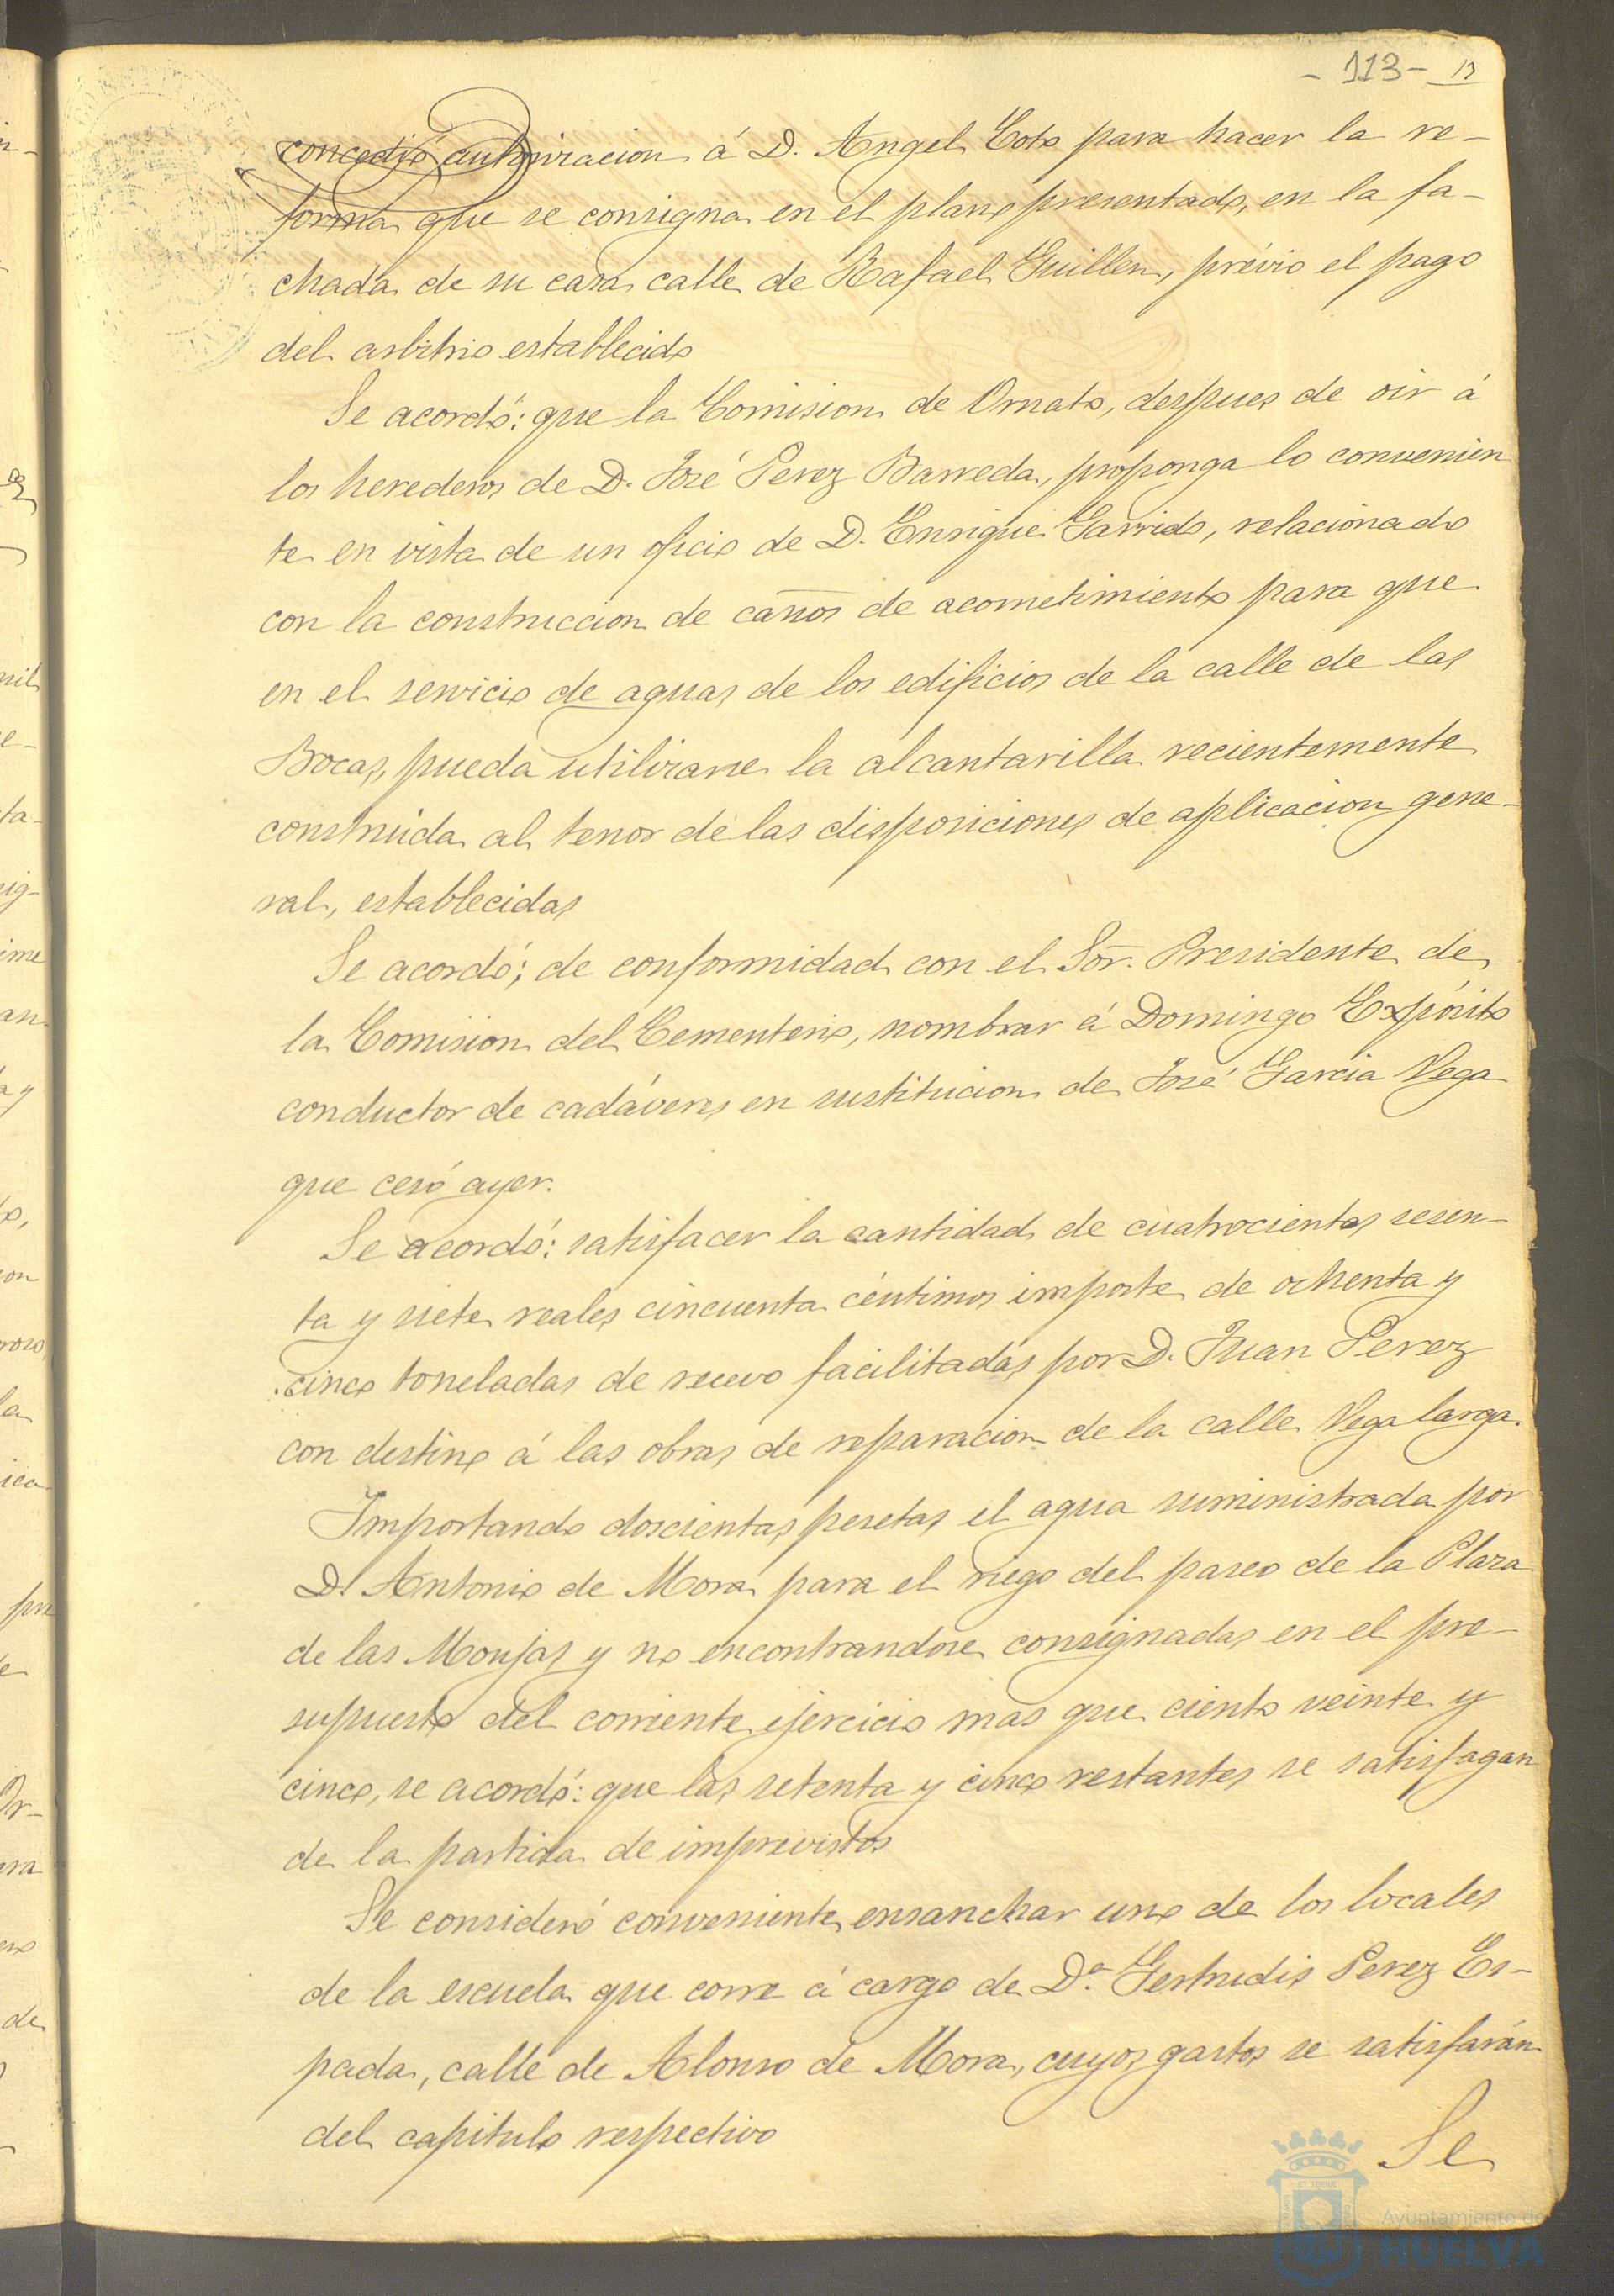 - 113 -
concedió autorizacion á D. Angel Coto para hacer la re-
forma que se consigna en el plano presentado, en la fa-
chada de su casa calle de Rafael Guillen, prévio el pago
del arbitrio establecido
Se acordó: que la Comision de Ornato, despues de oir á
los herederos de D. José Perez Barreda, proponga lo convenien
te en vista de un oficio de D. Enrique Garrido, relacionado
con la construccion de caños de acometimiento para que
en el servicio de aguas de los edificios de la calle de las
Bocas, pueda utilizarse la alcantarilla recientemente
construida al tenor de las disposiciones de aplicacion gene-
ral, establecidas
Se acordó; de conformidad con el Sor. Presidente de
la Comision del Cementerio, nombrar á Domingo Expósito
conductor de cadáveres en sustitucion de José Garcia Vega
que cesó ayer.
Se acordó: satisfacer la cantidad de cuatrocientos sesen-
ta y siete reales cincuenta céntimos importe de ochenta y
cinco toneladas de recevo facilitadas por D. Juan Perez
con destino á las obras de reparacion de la calle Vega larga.
Importando doscientas pesetas el agua suministrada por
D. Antonio de Mora para el riego del paseo de la Plaza
de las Monjas y no encontrandose consignadas en el pre-
supuesto del corriente ejercicio mas que ciento veinte y
cinco, se acordó: que las setenta y cinco restantes se satisfagan
de la partida de imprevistos
Se consideró conveniente ensanchar uno de los locales
de la escuela que corre á cargo de Dª Gertrudis Perez Es-
pada, calle de Alonso de Mora, cuyos gastos se satisfarán
del capitulo respectivo
Se
Ayuntamiento de
HUELVA